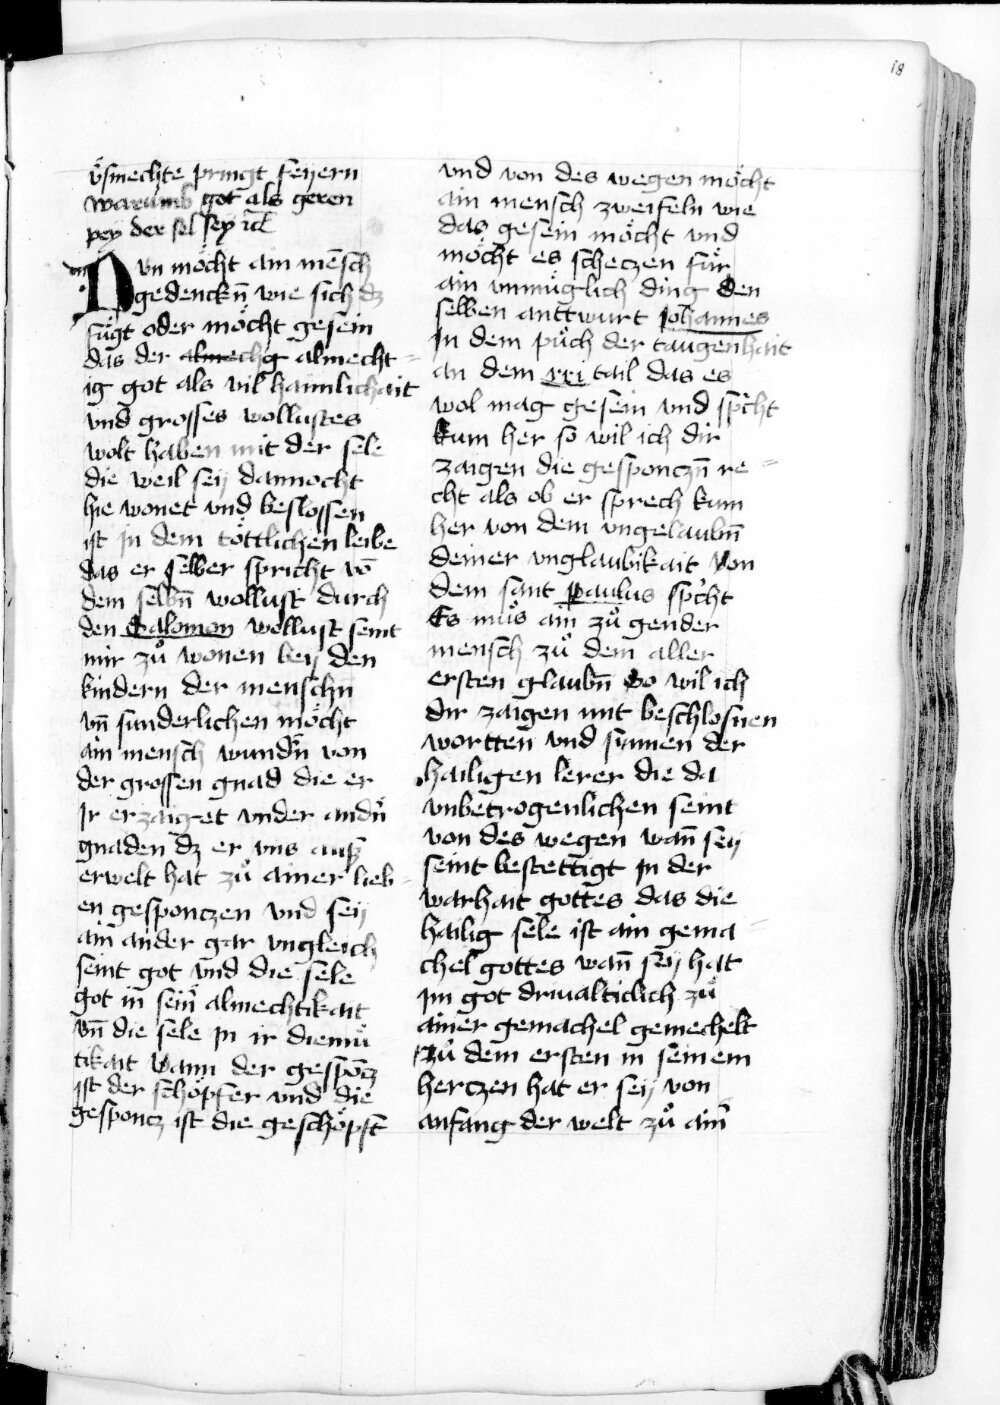 18
v̈smechte pringt feyern
warumb got als geren
pey der sel sey ic̃
Nvn mocht ain mensch
gedenckñ wie sich dz
fügt oder möcht gesein
das der almechg almecht=
ig got als vil haimlichait
vnd grosses wollustes
wolt haben mit der sele
die weil seÿ dannocht
hie wonet vnd beslossen
ist jn dem töttlichen leibe
das er selber spricht võ
dem selbñ wollust durch
den Salomon wollust seint
mir zů wonen beÿ den
kindern der menschñ
vñ sunderlichen möcht
ain mensch wundñ von
der grossen gnad die er
Ir erzaiget vnder andñ
gnaden dz er vns auß
erwelt hat zů ainer lieb=
en gesponczen vnd seÿ
ain ander gar vngleich
seint got vnd die sele
got in seiñ almechtikait
vñ die sele jn ir diemü
tikait wann der gespõcz
ist der schöpfer vnd die
gesponcz ist die geschöpft
vnd von des wegen möcht
ain mensch zweifeln wie
das gesein möcht vnd
möcht es scheczen für
ain vnmüglich ding den
selben anttwurt johannes
jn dem půch der taugenhait
an dem xxi tail das es
wol mag gesein vnd sp̃cht
kum her so wil ich dir
zaigen die gesponczñ re=
cht als ob er sprech kum
her von dem vngelaubñ
deiner vnglaubikait von
dem sant paulus sp̃cht
Es můs ain zů gender
mensch zů dem aller
ersten glaubñ So wil ich
dir zaigen mit beschlosnen
wortten vnd sinnen der
hailigen lerer die da
vnbetrogenlichen seint
von des wegen wañ seÿ
seint bestettigt jn der
warhait gottes das die
hailig sele ist ain gema=
chel gottes wañ seÿ hat
im got driualticlich zů
ainer gemachel gemechelt
Zů dem ersten in seinem
hertczen hat er seÿ von
anfang der welt zů aiñ